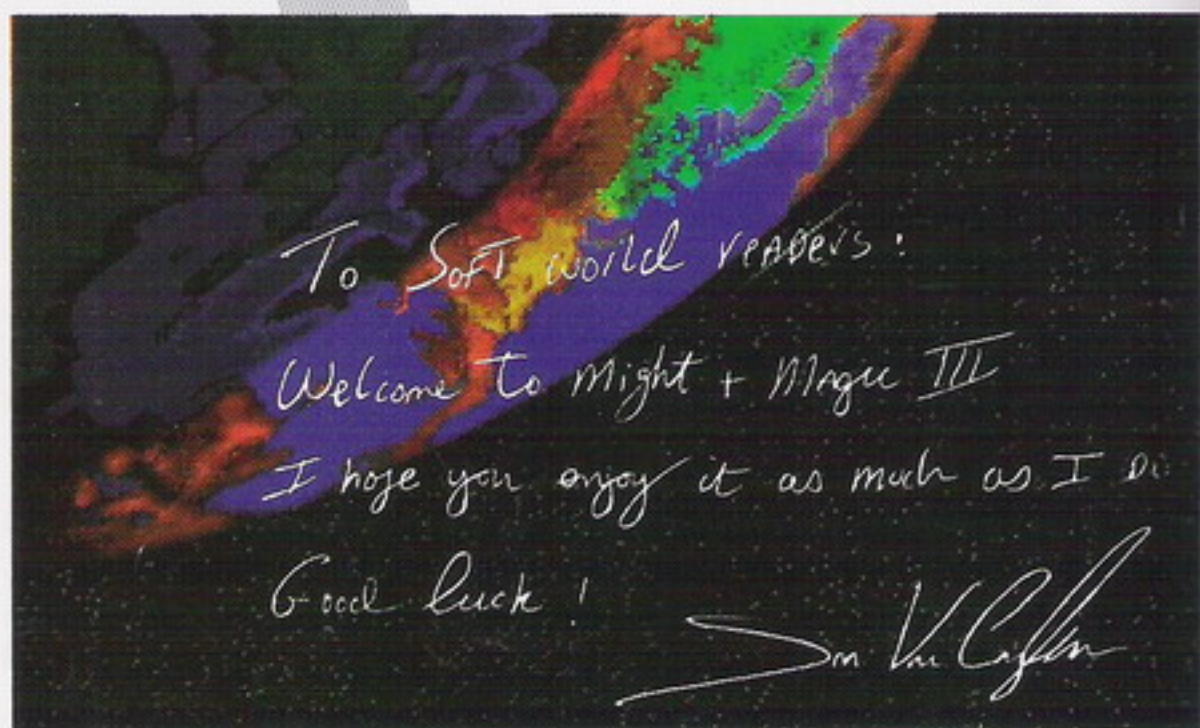 To Soft world readers:
Welcome to Might + Magic III
I hope you enjoy it as much as I Do
Good luck!
Jon Van Caneghem